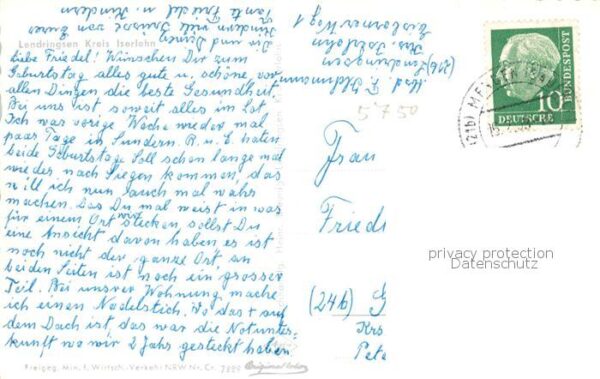 Lendringsen Kreis Iserlohn
Liebe Friedel! Wünschen Dir zum
Geburtstag alles gute u. schöne, vor
allen Dingen die beste Gesundheit.
Bei uns ist soweit alles im Lot
Ich war vorige Woche wieder mal
paar Tage in Sundern. R. u. E. haten
beide Geburtstage. Soll schon lange mal
wieder nach Siegen kommen, das
will ich nun auch mal wahr
machen. Das Du mal weist in was
für einem Ort wir stecken sollst Du
eine Ansicht davon haben es ist
noch nicht der ganze Ort an
beiden Seiten ist noch ein grosser
Teil. Bei unsrer Wohnung mache
ich einen Nadelstich. Wo das + auf
dem Dach ist, das war die Notunter
kunft wo wir 2 Jahr gesteckt haben
Dir und deinen
Kindern viele Grüsse von Eures
Tante Friedel u. Kindern
(21b) Lendringsen
Krs. Iserlohn
Bieberner Weg 1
5.7.50
(21b) ME
10
DEUTSCHE
BUNDESPOST
Frau
Fried
(24b) G
Krs
Pete
privacy protection
Datenschutz
Freigeg. Min. f. Wirtsch. Verkehr NRW Nr. Cr. 7829